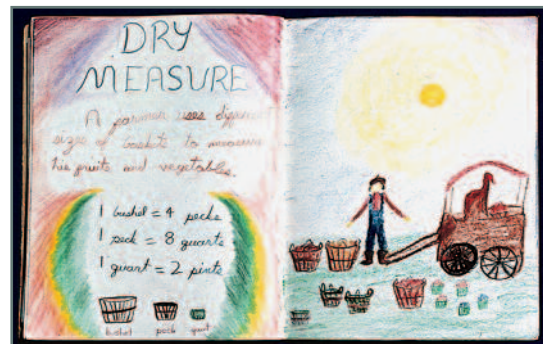 DRY
MEASURE
A farmer uses different
sizes of baskets to measure
his fruits and vegetables.
1 bushel = 4 pecks
1 peck = 8 quarts
1 quart = 2 pints
bushel peck quart